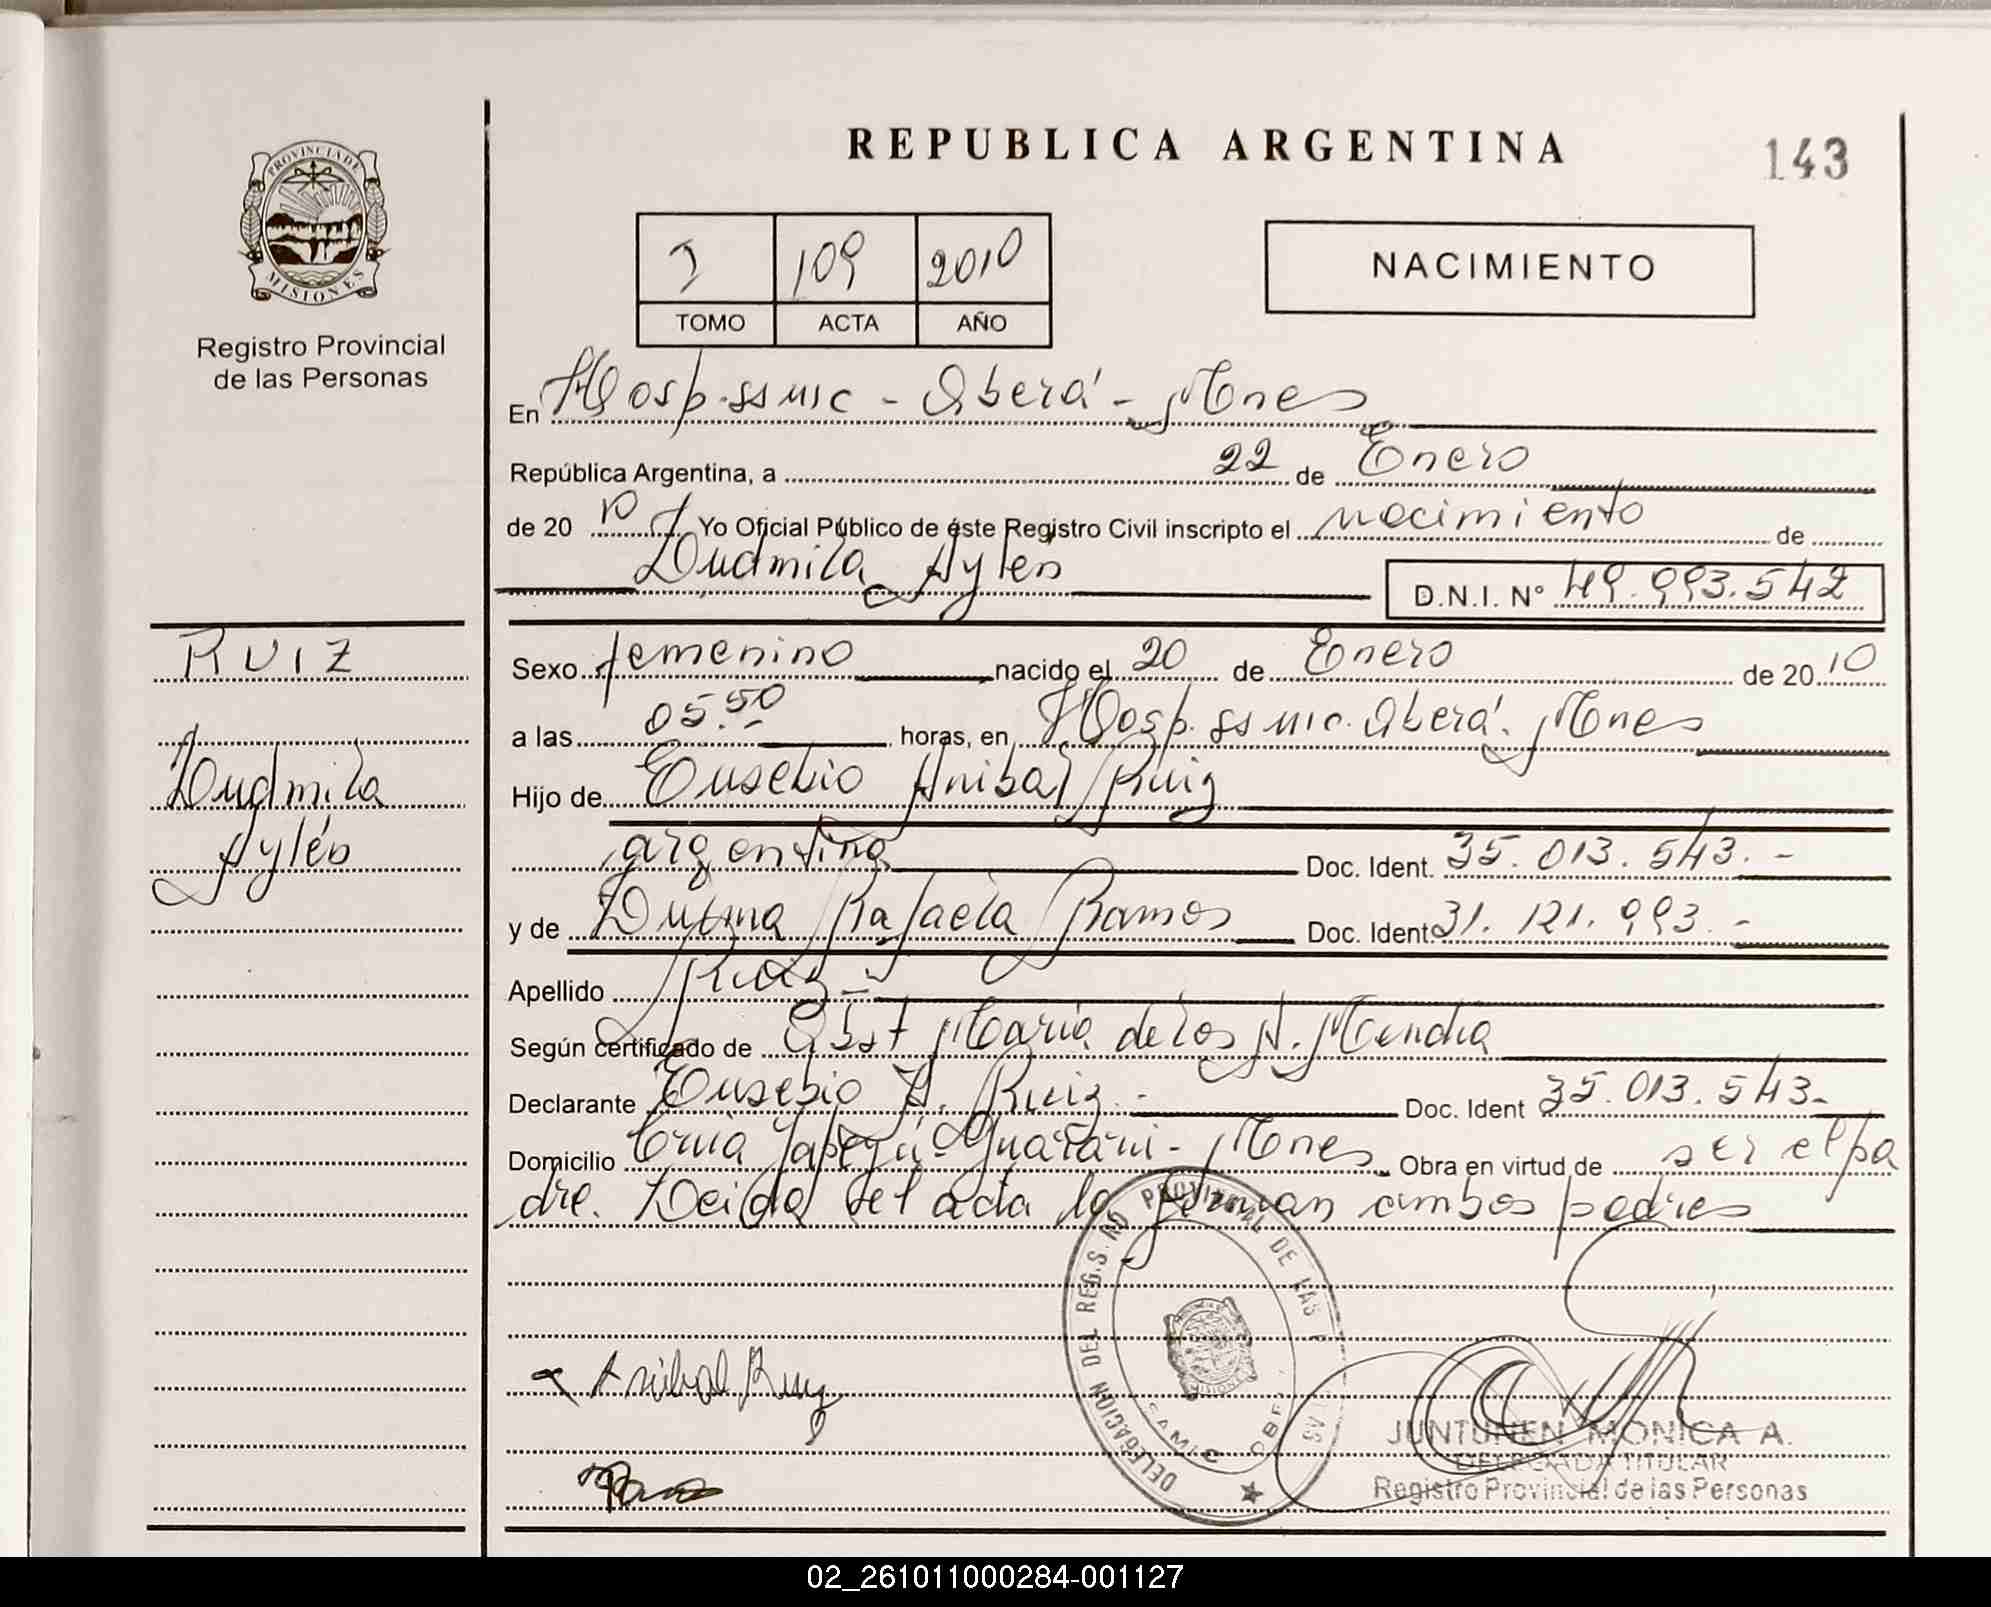 REPUBLICA ARGENTINA
143
PROVINCIA DE
MISIONES
Registro Provincial
de las Personas
I 109 2010
TOMO ACTA AÑO
NACIMIENTO
En Hosp. ss mic - Oberá - Mnes
República Argentina, a 22 de Enero
de 20 10 Yo Oficial Público de éste Registro Civil inscripto el nacimiento de
Ludmila Aylén
D.N.I. N° 49.993.542
RUIZ
Ludmila
Aylén
Sexo femenino nacido el 20 de Enero de 20 10
a las 05.50 horas, en Hosp. ss mic. Oberá. Mnes
Hijo de Eusebio Anibal Ruiz
argentina Doc. Ident. 35.013.543.-
y de Rafaela Ramos Doc. Ident. 31.121.993.-
Apellido Ruiz.-
Según certificado de Obst María de los A. Mendia
Declarante Eusebio A. Ruiz.- Doc. Ident 35.013.543-
Domicilio Yapeyú - Guaraní - Mnes. Obra en virtud de ser el pa
dre. Leida el acta la firman ambos padres
DELEGACION DEL REG. PROVINCIAL DE LAS
Anibal Ruiz
JUNTUNEN MONICA A.
DELEGADA TITULAR
Registro Provincial de las Personas
02_261011000284-001127